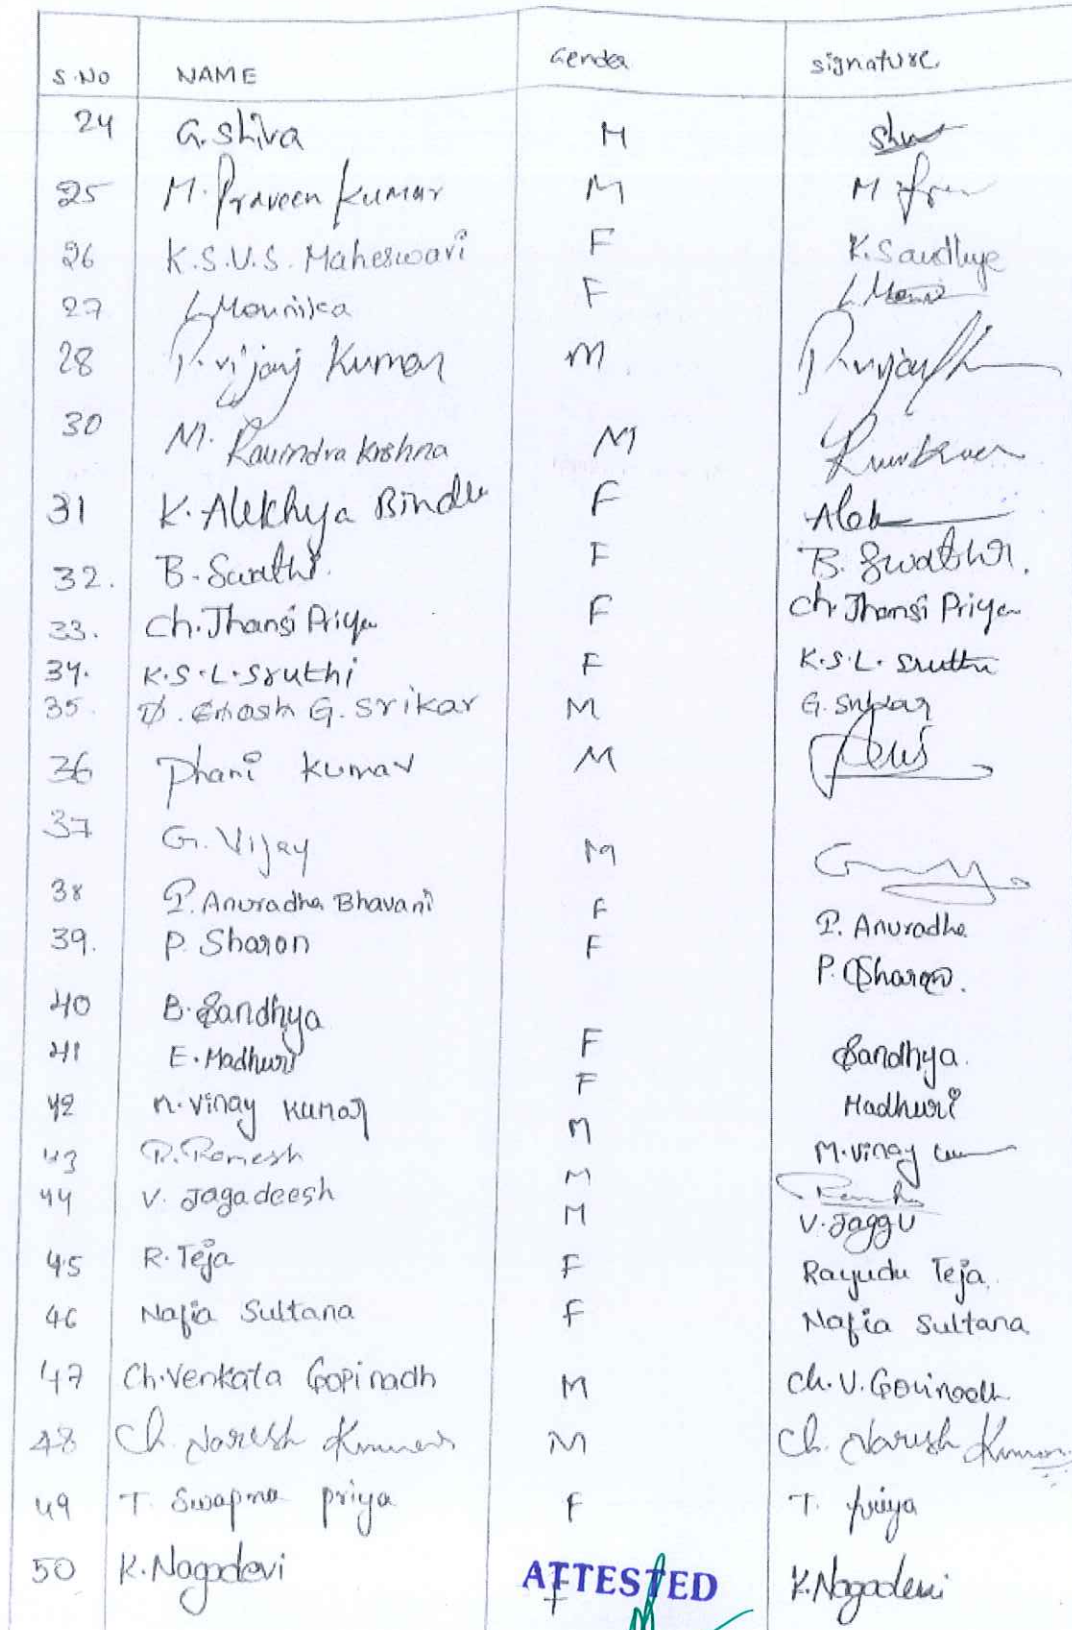 S.NO NAME Gender signature
24 G. Shiva M Shiv
25 M. Praveen Kumar M M
26 K.S.V.S. Maheswari F K. Sandhya
27 L Mounika F L. Mouni
28 P. Vijay Kumar M
30 M. Ravindra Krishna M
31 K. Alekhya Bindu F Alek
32. B. Swathi F B. Swathi.
33. Ch. Jhansi Priya F Ch Jhansi Priya
34. K.S.L. Sruthi F K.S.L. Sruthi
35. G. Srikar M G. Srikar
36 Phani Kumar M
37 G. Vijay M
38 P. Anuradha Bhavani F P. Anuradha
39. P. Sharon F P. Sharon.
40 B. Sandhya F Sandhya.
41 E. Madhuri F Madhuri
42 M. Vinay Kumar M M. Vinay
43 P. Ramesh M
44 V. Jagadeesh M V. Jaggu
45 R. Teja F Rayudu Teja.
46 Nafia Sultana F Nafia Sultana
47 Ch. Venkata Gopinadh M Ch. V. Gopinadh
48 Ch. Naresh Kumar M Ch. Naresh Kumar
49 T. Swapna Priya F T. Priya
50 K. Nagadevi F K. Nagadevi
ATTESTED